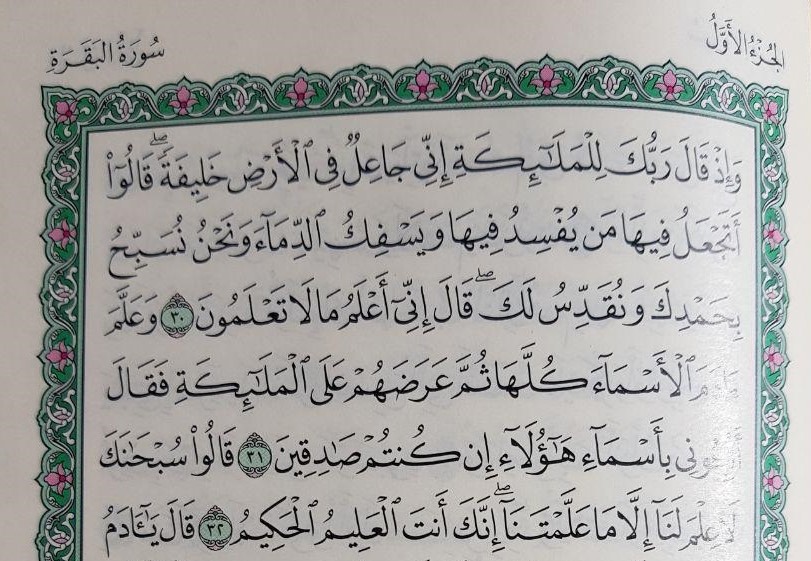 الجزء الأول
سورة البقرة
وَإِذْ قَالَ رَبُّكَ لِلْمَلَـٰٓئِكَةِ إِنِّى جَاعِلٌ فِى ٱلْأَرْضِ خَلِيفَةًۖ قَالُوٓا۟
أَتَجْعَلُ فِيهَا مَن يُفْسِدُ فِيهَا وَيَسْفِكُ ٱلدِّمَآءَ وَنَحْنُ نُسَبِّحُ
بِحَمْدِكَ وَنُقَدِّسُ لَكَۖ قَالَ إِنِّىٓ أَعْلَمُ مَا لَا تَعْلَمُونَ ٣٠ وَعَلَّمَ
ٱلْأَسْمَآءَ كُلَّهَا ثُمَّ عَرَضَهُمْ عَلَى ٱلْمَلَـٰٓئِكَةِ فَقَالَ
بِأَسْمَآءِ هَـٰٓؤُلَآءِ إِن كُنتُمْ صَـٰدِقِينَ ٣١ قَالُوا۟ سُبْحَـٰنَكَ
لَا عِلْمَ لَنَآ إِلَّا مَا عَلَّمْتَنَآۖ إِنَّكَ أَنتَ ٱلْعَلِيمُ ٱلْحَكِيمُ ٣٢ قَالَ يَـٰٓـَٔادَمُ